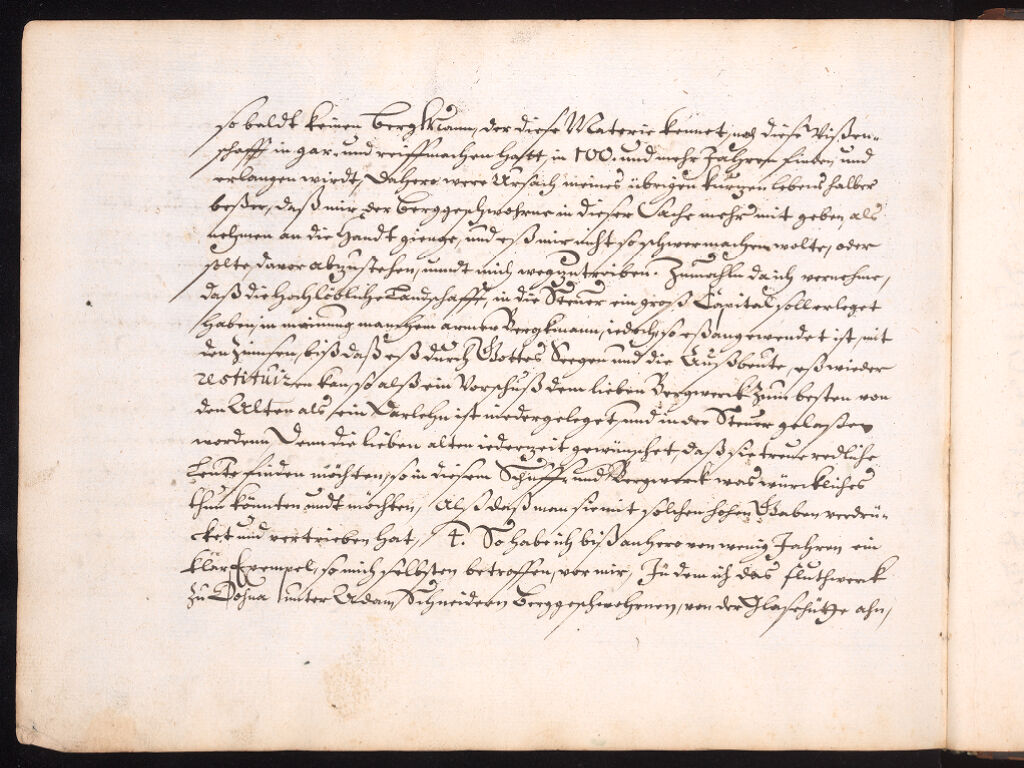 so baldt keinen BergkMann, der diese Materie kennet, noch diese Wißen-
schafft in gar, und reiff machen hatt, in 100. und mehr Jahren finden, und
erlangen wirdt, Dahero were Ursach meines übrigen kurtzen lebens halber
beßer, daß mir der Berggeschwohrne in dieser Sache mehr mit geben, als
nehmen an die Handt gienge, und eß mir nicht so schwer machen wolte, oder
solte, davor abzustehen, unndt mich weg zu treiben. Zumahln da ich vernehme,
daß die Hochlöbliche Landschafft, in die Steuer ein groß Capital soll erleget
haben, in meinung manchem armen Bergkmann, jedoch so eß angewendet ist, mit
den Zinnsen, biß daß eß durch Gottes Seegen und die Außbeute, eß wieder
restituiren kan, so alß ein Vorschuß dem lieben Bergwerck zum besten von
den Alten als ein Darlehn ist niedergeleget, und in der Steuer gelaßen
worden. Denn die lieben alten jederzeit gewünschet, daß sie treue redliche
Leute finden möchten, so in diesem Schurff, und Bergwerck was würckliches
thun könnten undt möchten, Alß daß man sie mit solchen hohen Gaben verdrü-
cket und vertrieben hat, 4. So habe ich biß anhero von wenig Jahren ein
klar Exempel, so mich selbsten betroffen, vor mir, Indem ich das fluthwerk
zu Dohna unter Adam Schneidern Berggeschwohrnen, von der Glaßhütte ahn,